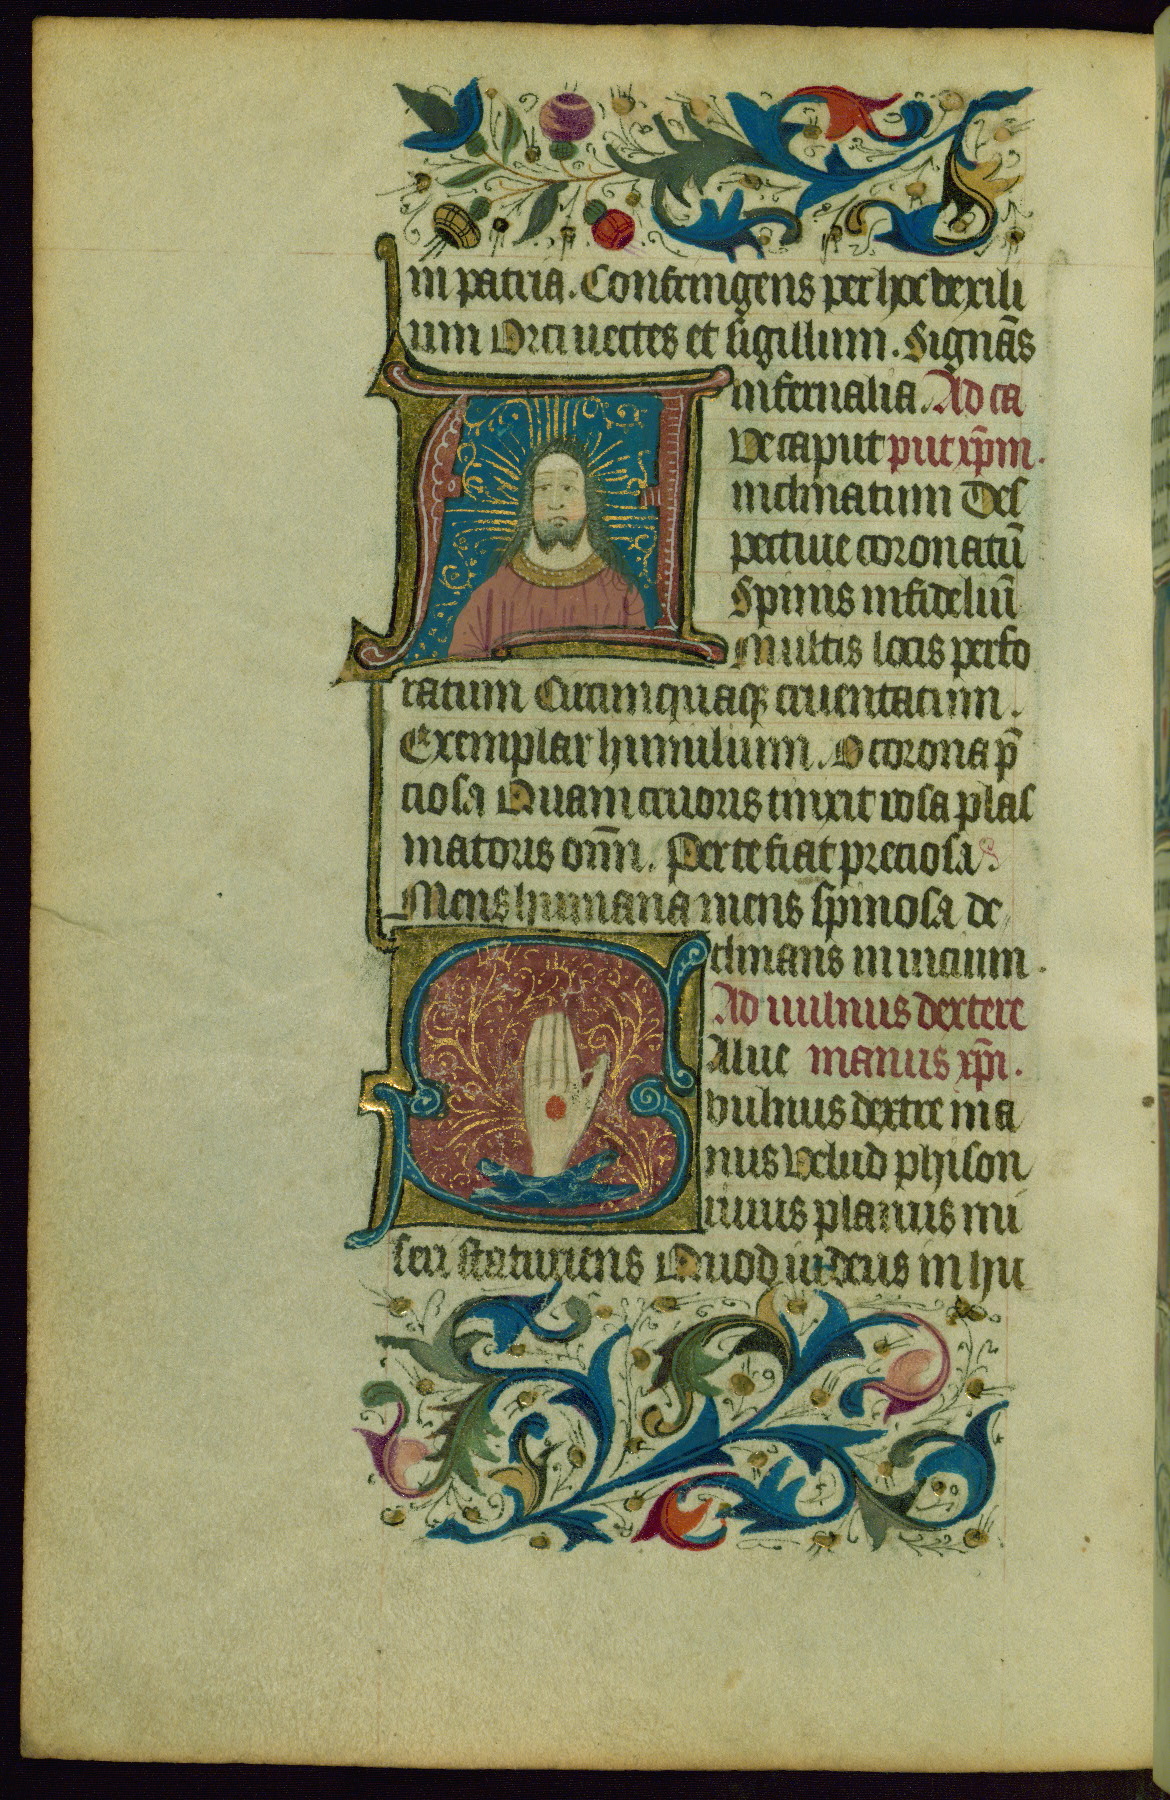 in patria. Confringens per hoc vexilli
um Orci vectes et sigillum. Signās
infernalia. Ad ca
Ve caput put xp̄m.
inclinatum Des
pective coronatū
Spinis infideliū
Multis locis perfo
ratum Circumquaq; cruentatum.
Exemplar humilium. O corona p̄
ciosa Quam cruoris tinxit rosa plas
matoris om̄n. Per te fiat preciosa
Mens humana mens spinosa de
clinans in vicium.
Ad vulnus dextere
Alve manus xp̄i.
vulnus dextre ma
nus Velud phison
unus planus mi
seri Quod iudeus in hu